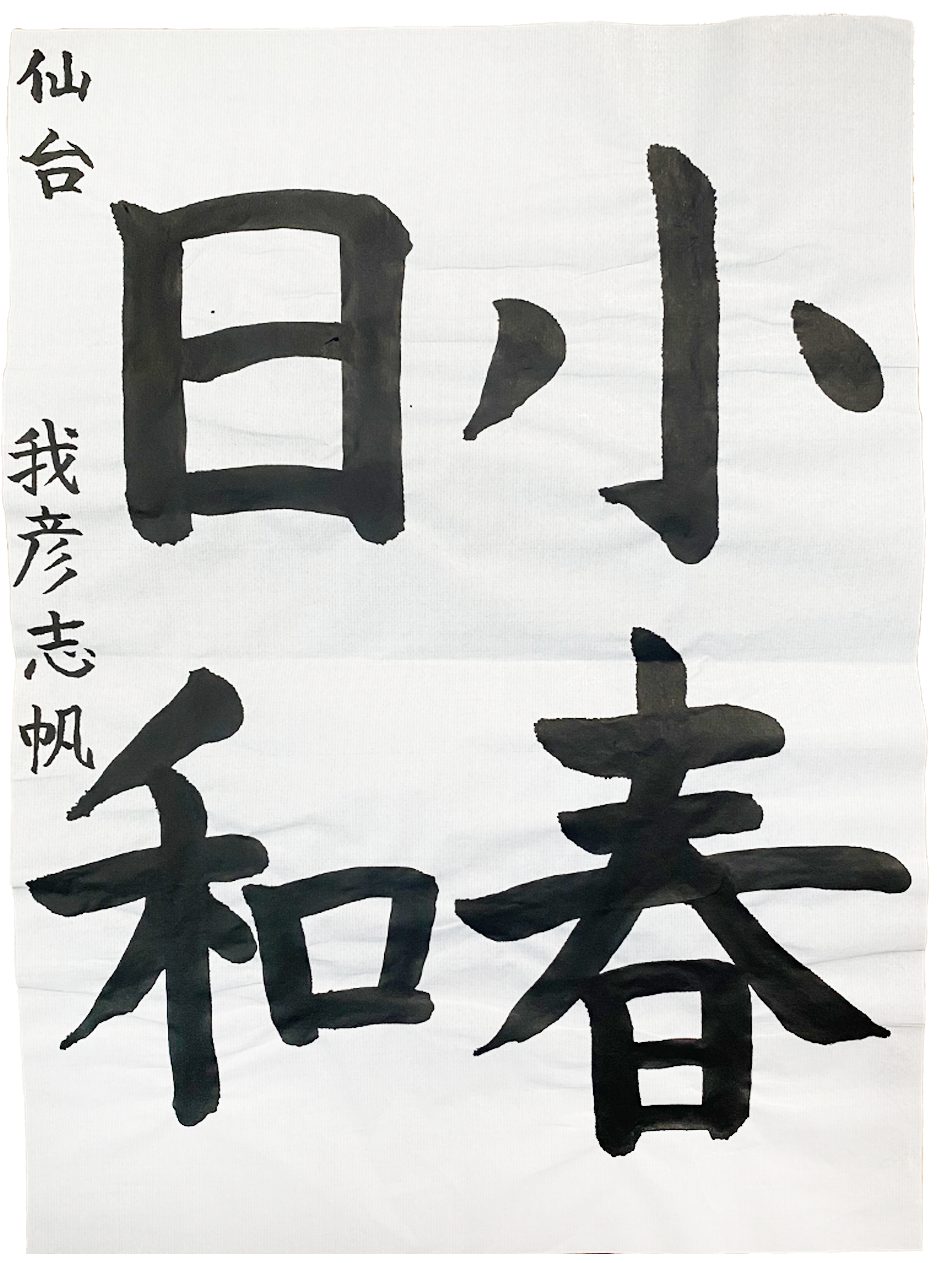 小春
日和
仙台 我彦志帆